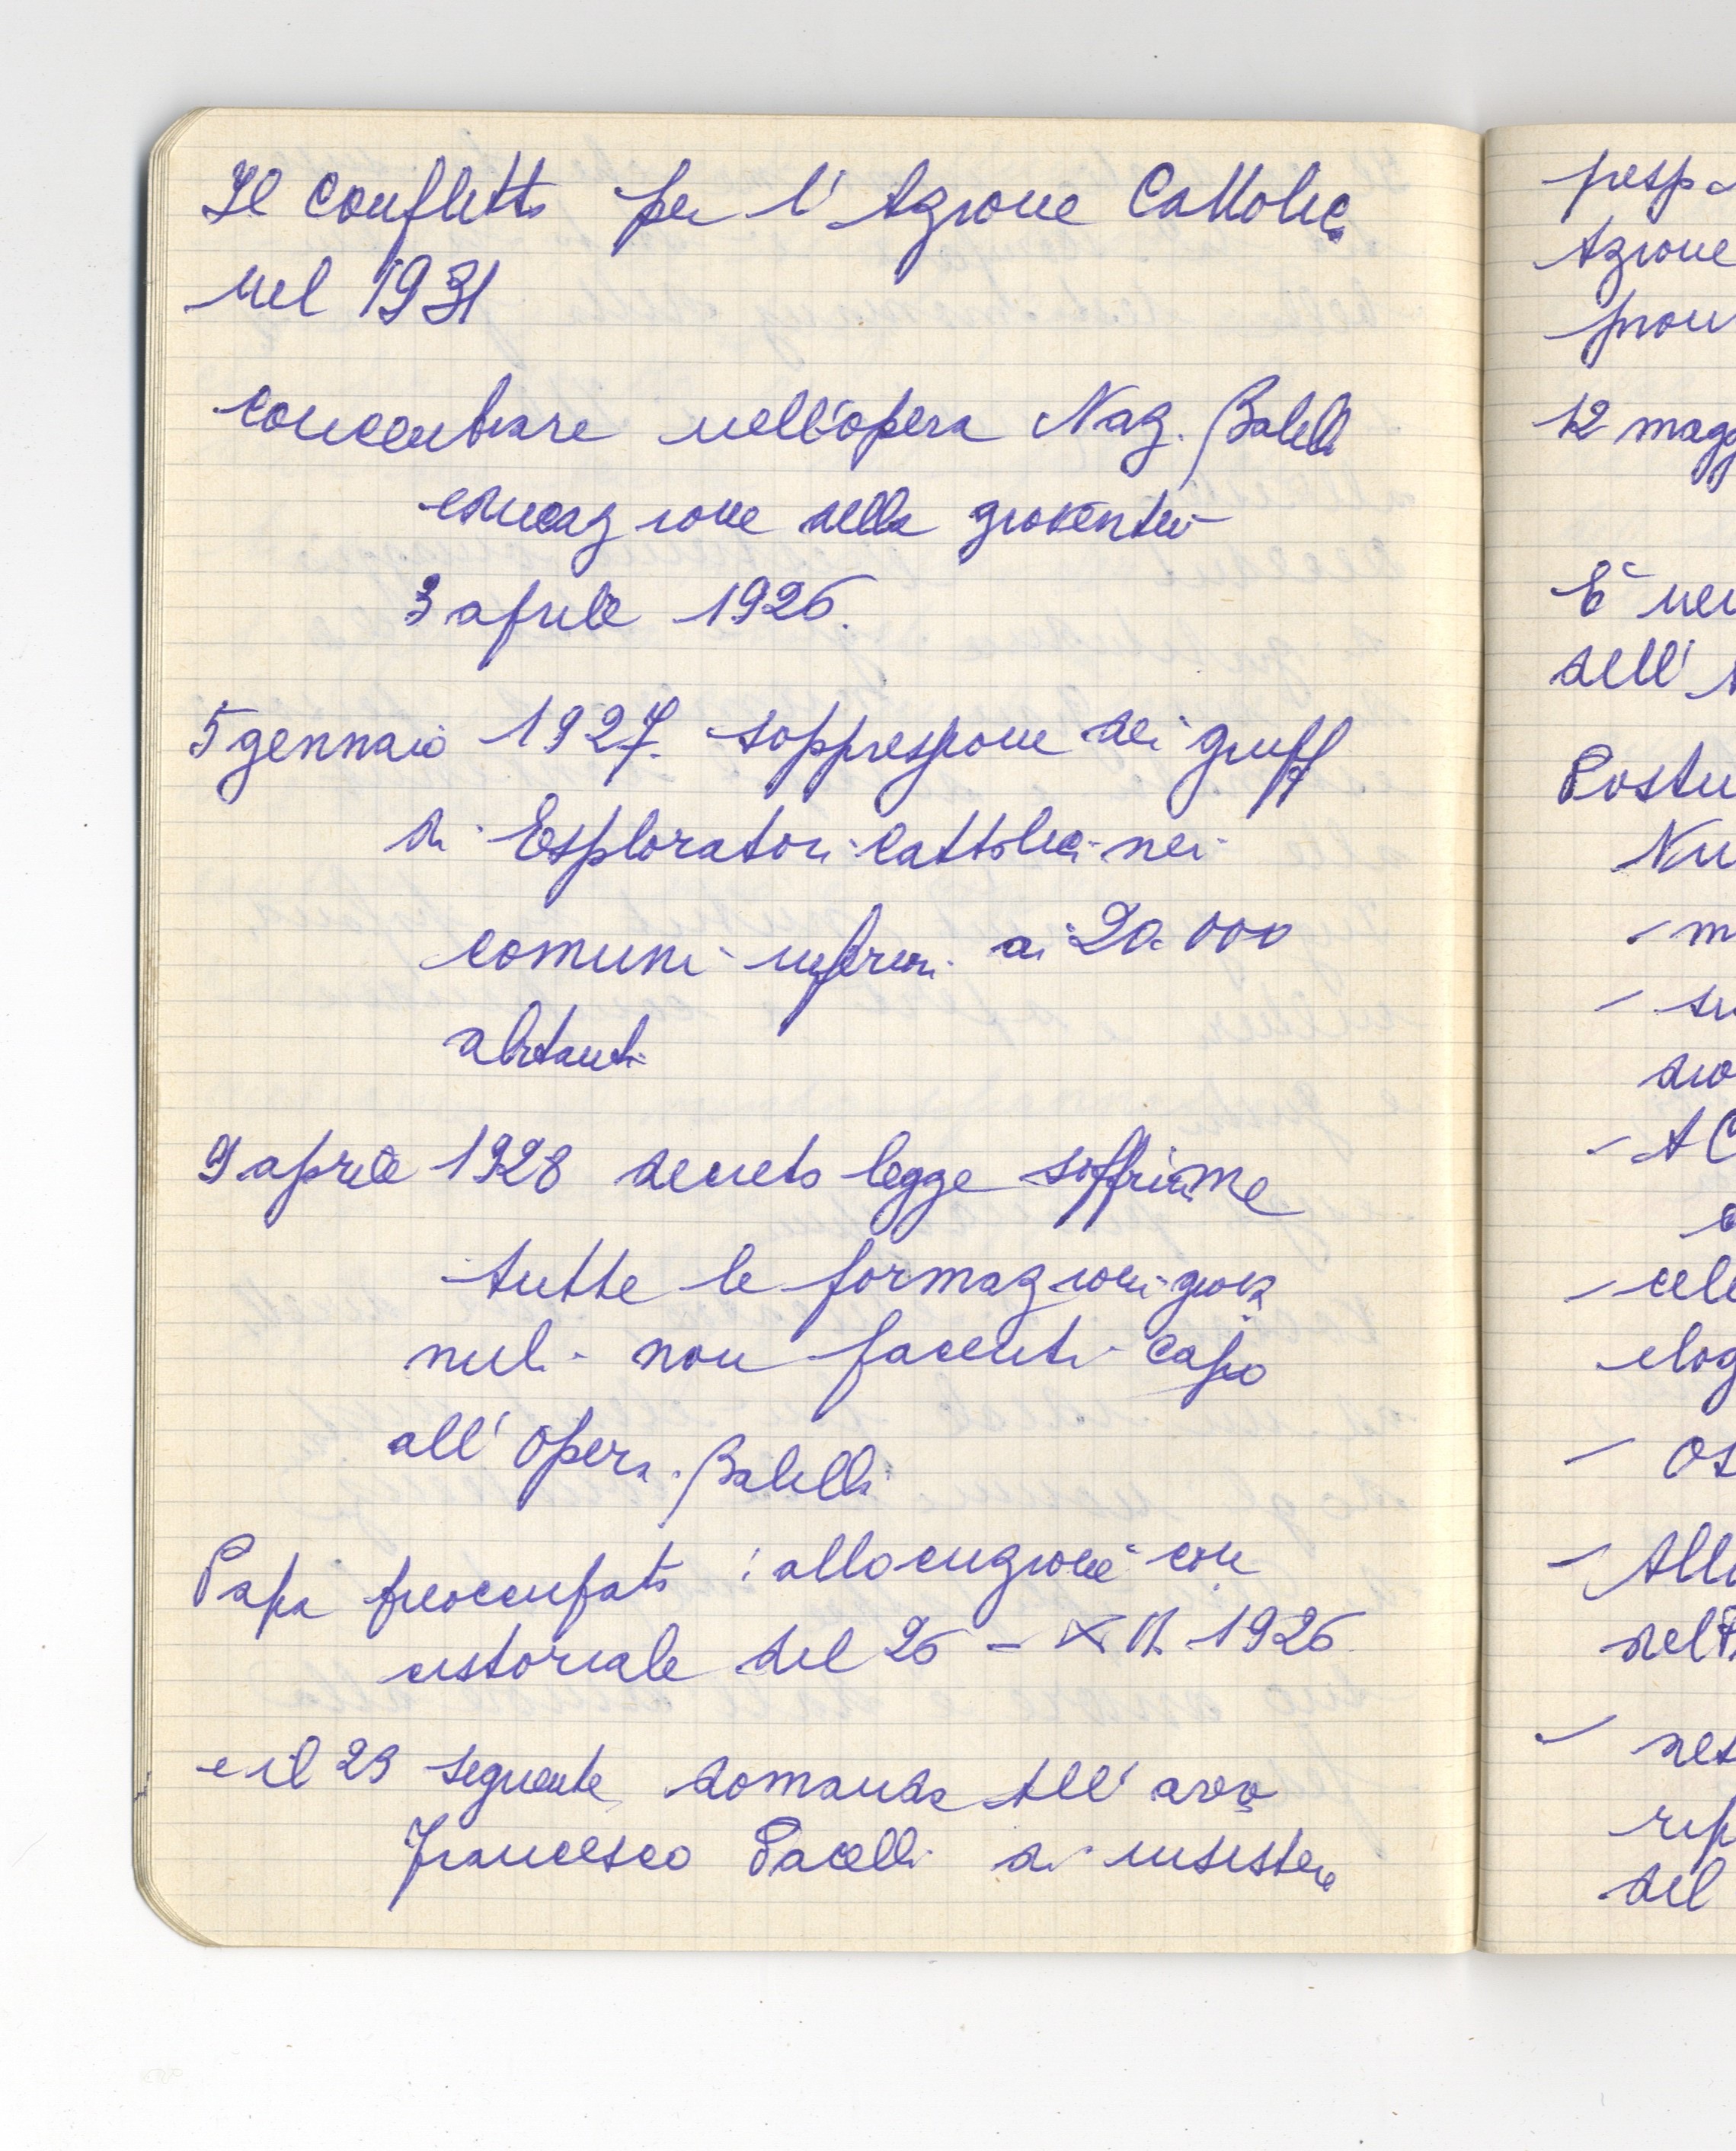 Il conflitto per l'Azione Cattolica
nel 1931
concentrare nell'opera Naz. Balilla
educazione della gioventù
3 aprile 1926.
5 gennaio 1927. soppressione dei gruppi
di Esploratori Cattolici nei
comuni inferiori ai 20.000
abitanti
9 aprile 1928 decreto legge sopprime
tutte le formazioni giova
nili non facenti capo
all'Opera Balilla
Papa preoccupato : allocuzione con
cistoriale del 20 - XII 1926
e il 23 seguente domanda all'avv
Francesco Pacelli di insistere
Azione
12 magg
E'
dell' A
Postu
Nu
- m
- su
dio
- AC
- cele
elog
- os
- Allo
del